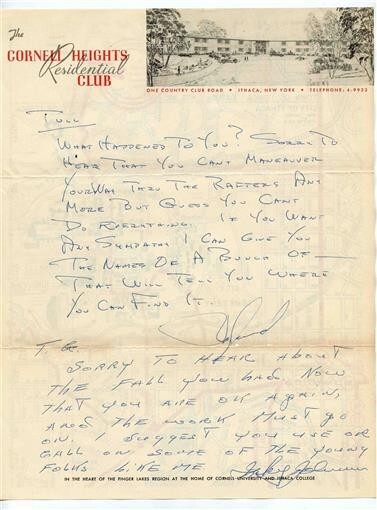 The
CORNELL HEIGHTS
Residential
CLUB
ONE COUNTRY CLUB ROAD • ITHACA, NEW YORK • TELEPHONE: 4-9933
TULL
WHAT HAPPENED TO YOU? SORRY TO
HEAR THAT YOU CANT MANEUVER
YOUR WAY THRU THE RAFTERS ANY
MORE BUT GUESS YOU CANT
DO EVERYTHING. IF YOU WANT
ANY SYMPATHY I CAN GIVE YOU
THE NAMES OF A BUNCH OF —
THAT WILL TELL YOU WHERE
YOU CAN FIND IT.
T. G.
SORRY TO HEAR ABOUT
THE FALL YOU HAD. NOW
THAT YOU ARE OK AGAIN,
AND THE WORK MUST GO
ON. I SUGGEST YOU USE OR
CALL ON SOME OF THE YOUNG
FOLKS LIKE ME
IN THE HEART OF THE FINGER LAKES REGION AT THE HOME OF CORNELL UNIVERSITY AND ITHACA COLLEGE